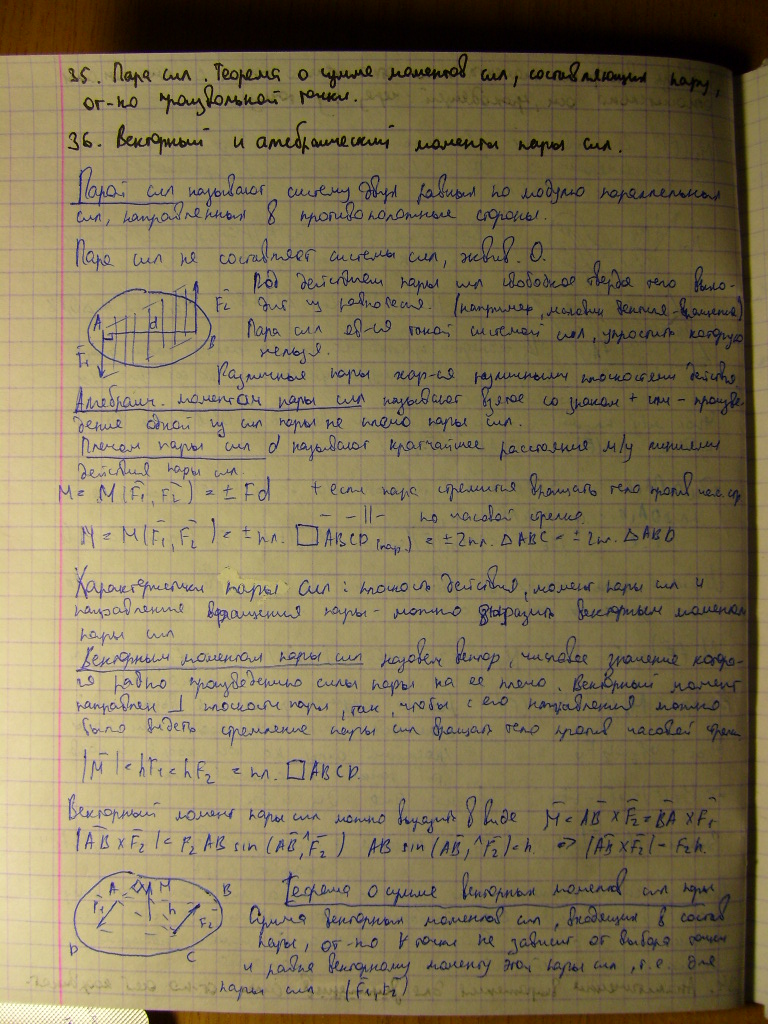 35. Пара сил. Теорема о сумме моментов сил, составляющих пару,
от-но произвольной точки.
36. Векторный и алгебраический моменты пары сил.
Парой сил называют систему двух равных по модулю параллельных
сил, направленных в противоположные стороны.
Пара сил не составляет системы сил, эквив. 0.
Под действием пары сил свободное твердое тело выхо-
дит из равновесия. (например, вращения)
Пара сил яв-ся такой системой сил, упростить которую
нельзя.
A d B F̄₂
F̄₁
Различные пары хар-ся различными плоскостями действия
Алгебраич. моментом пары сил называют взятое со знаком + или - произве-
дение одной из сил пары на плечо пары сил.
Плечом пары сил d называют кратчайшее расстояние м/у линиями
действия пары сил.
M = M(F̄₁, F̄₂) = ± Fd + если пара стремится вращать тело против час. стр.
- -||- по часовой стрелке
M = M(F̄₁, F̄₂) = ± пл. □ABCD (пар.) = ±2пл. △ABC = ±2пл. △ABD
Характеристики пары сил: плоскость действия, момент пары сил и
направление вращения пары - можно выразить векторным моментом
пары сил
Векторным моментом пары сил назовем вектор, числовое значение которо-
го равно произведению силы пары на ее плечо. Векторный момент
направлен ⊥ плоскости пары, так, чтобы с его направления можно
было видеть стремление пары сил вращать тело против часовой стрелки
|M̄| = hF₁ = hF₂ = пл. □ABCD.
Векторный момент пары сил можно выразить в виде M̄ = AB̄ × F̄₂ = BĀ × F̄₁
|AB̄ × F̄₂| = F₂ AB sin(AB̄,^F̄₂) AB sin(AB̄,^F̄₂) = h. => |AB̄ × F̄₂| = F₂h.
A M B
F₁ h F₂
D C
Теорема о сумме векторных моментов сил пары
Сумма векторных моментов сил, входящих в состав
пары, от-но ∀ точки не зависит от выбора точки
и равна векторному моменту этой пары сил, т.е. для
пары сил (F̄₁, F̄₂)